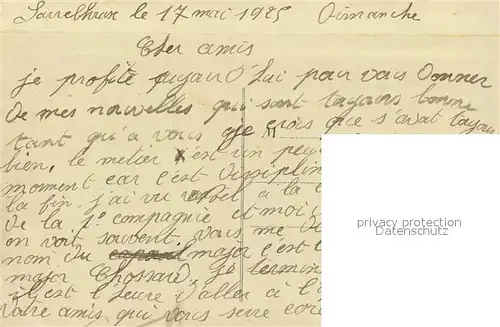 Sarrelbruk le 17 mai 1925 Dimanche
Cher amis
je profite aujourd'lui pour vous donner
de mes nouvelles qui sont toujours bonne
tant qu'a vous je crois que s'avat toujou
bien, le metier c'est un peu
moment car c'est disiplin
la fin. j'ai vu bel à la c
de la 1e compagnie et moi
on voit souvent. vous me di
nom du major c'est l
major Chossard, je termin
il est l'heure d'aller à l'
votre amis qui vous serre cor
privacy protection
Datenschutz